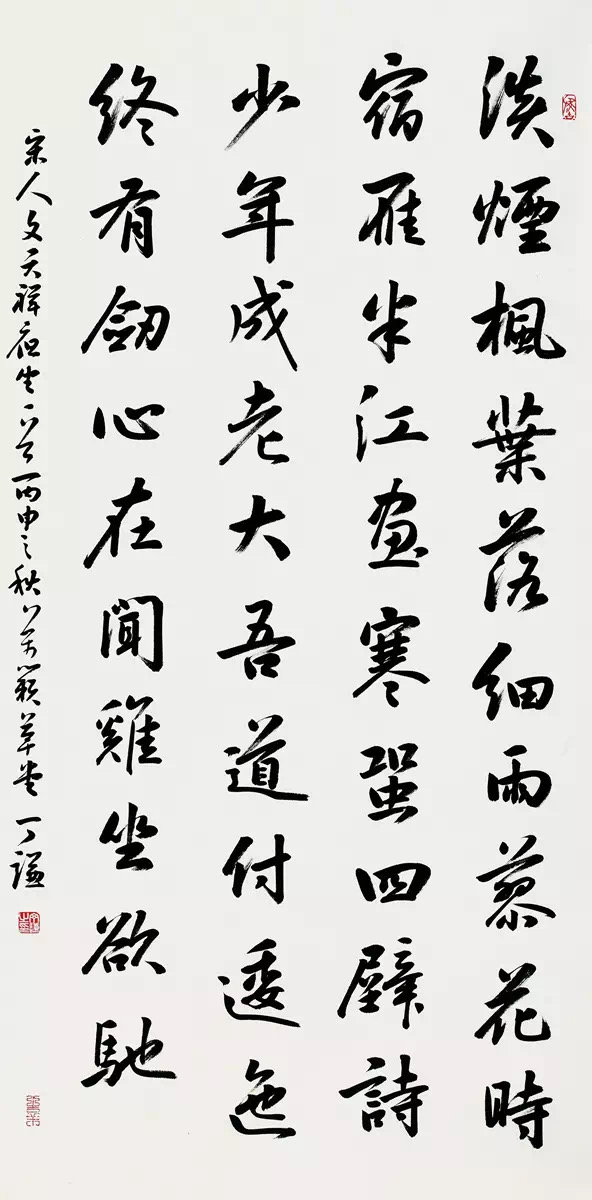 淡煙楓葉落細雨蓼花時
宿雁半江畫寒蛩四壁詩
少年成老大吾道付逶迤
終有劒心在聞雞坐欲馳
宋人文天祥夜坐一首丙申之秋於万籟草堂丁謙